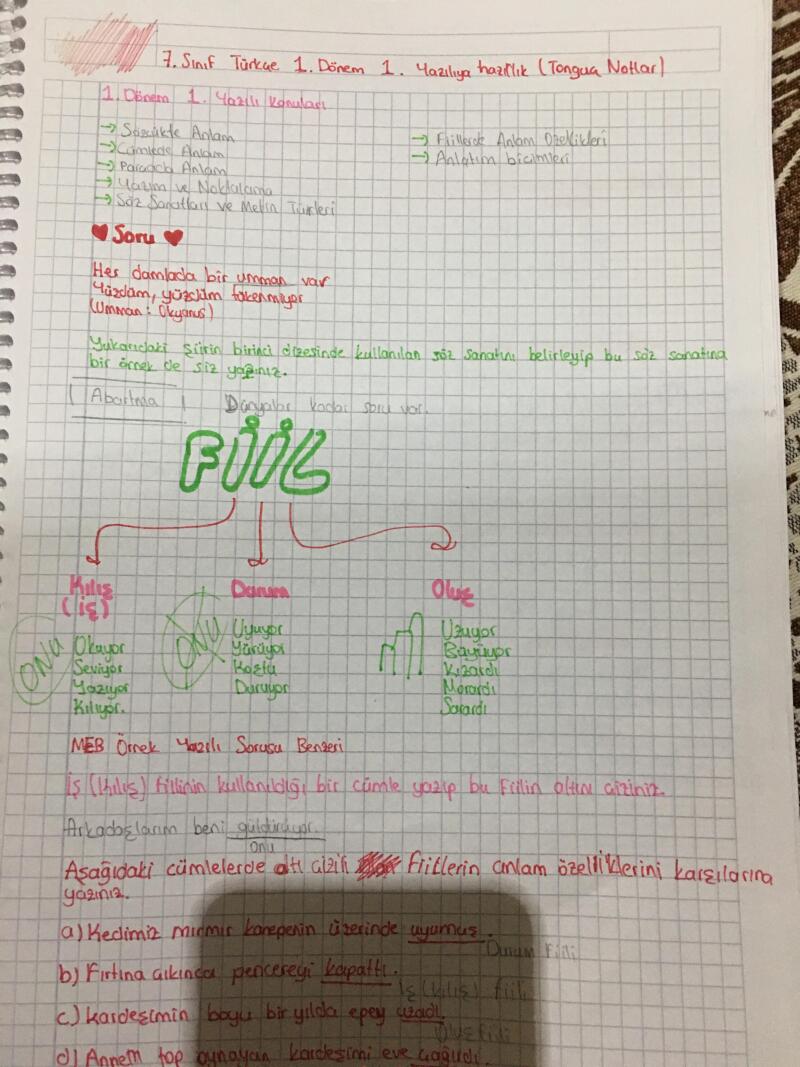 7. Sınıf Türkçe 1. Dönem 1. Yazılıya hazırlık (Tongua Notlar)
1. Dönem 1. Yazılı Konuları
→ Sözcükte Anlam
→ Cümlede Anlam
→ Paragrafta Anlam
→ Yazım ve Noktalama
→ Söz Sanatları ve Metin Türleri
→ Fiillerde Anlam Özellikleri
→ Anlatım biçimleri
♥ Soru ♥
Her damlada bir umman var
Yüzdüm, yüzdüm tükenmiyor
(Umman: Okyanus)
Yukarıdaki şiirin birinci dizesinde kullanılan söz sanatını belirleyip bu söz sanatına
bir örnek de siz yazınız.
Abartma Dünyalar kadar soru var.
FİİL
Kılış
(İş)
ONU
Okuyor
Seviyor
Yazıyor
Kılıyor.
Durum
ONU
Uyuyor
Yürüyor
Koştu
Duruyor
Oluş
Uzuyor
Büyüyor
Kızardı
Morardı
Sarardı
MEB Örnek Yazılı Sorusu Benzeri
İş (Kılış) fiilinin kullanıldığı bir cümle yazıp bu fiilin altını çiziniz.
Arkadaşlarım beni güldürüyor.
onu
Aşağıdaki cümlelerde altı çizili fiillerin anlam özelliklerini karşılarına
yazınız.
a) Kedimiz mırmır kanepenin üzerinde uyumuş.
Durum Fiili
b) Fırtına çıkınca pencereyi kapattı.
İş (kılış) fiili
c) Kardeşimin boyu bir yılda epey uzadı.
Oluş fiili
d) Annem top oynayan kardeşimi eve çağırdı.